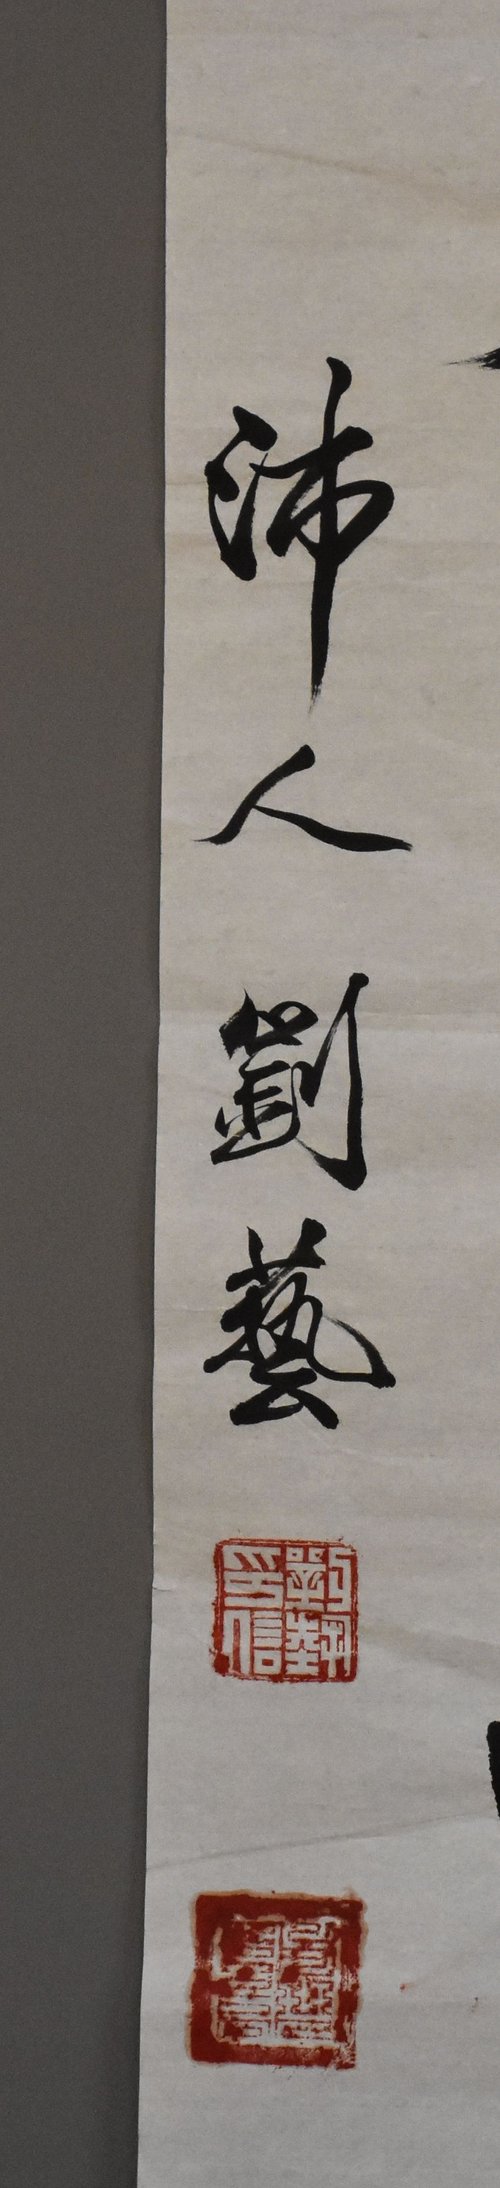 沛人劉藝
劉藝印信